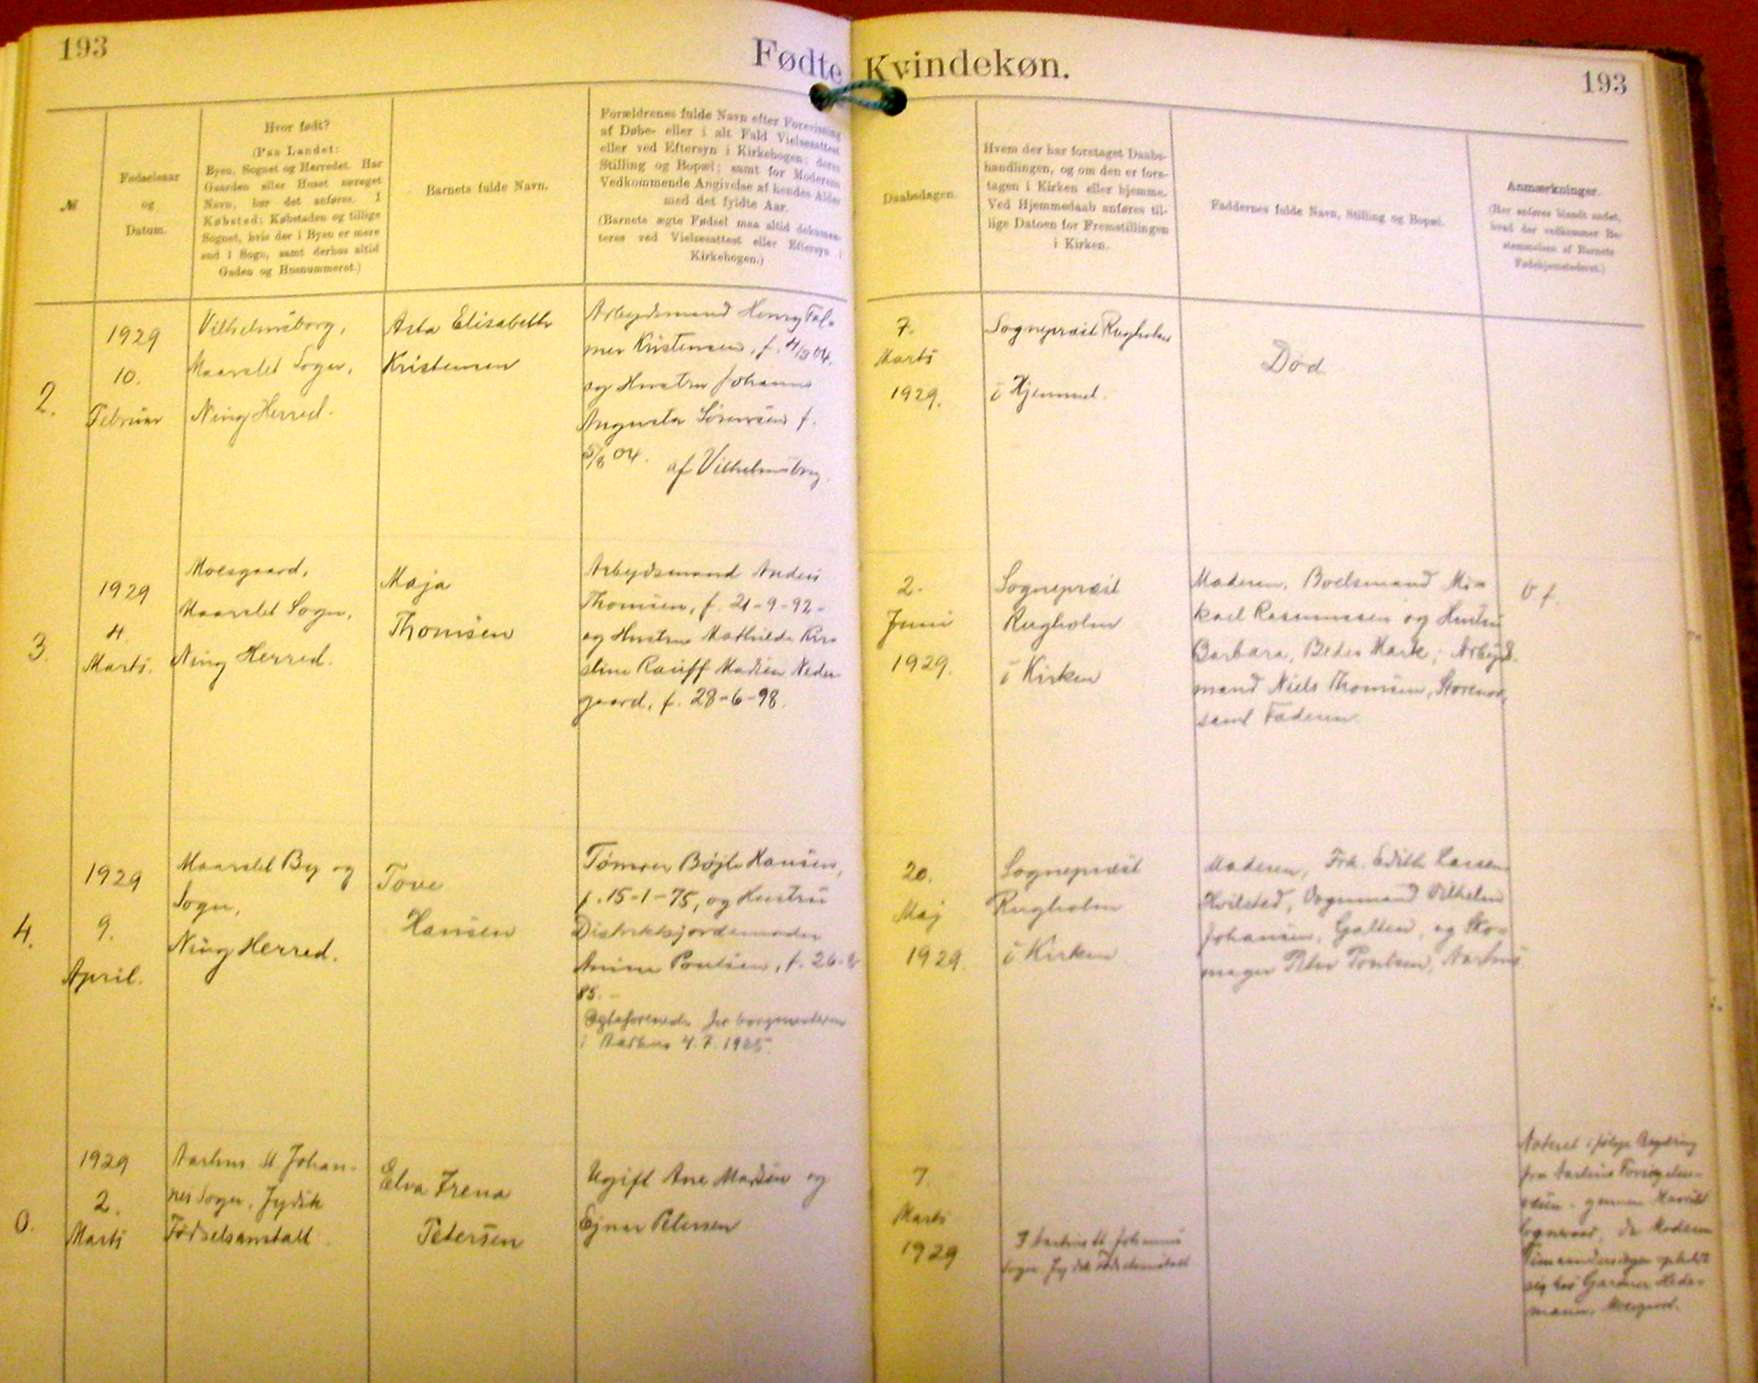 193
Fødte Kvindekøn.
193
№
Fødselsaar
og
Datum.
Hvor født?
(Paa Landet:
Byen, Sognet og Herredet. Har
Gaarden eller Huset særeget
Navn, bør det anføres. I
Købstad: Købstaden og tillige
Sognet, hvis der i Byen er mere
end 1 Sogn, samt derhos altid
Gaden og Husnummeret.)
Barnets fulde Navn.
Forældrenes fulde Navn efter Forevisning
af Døbe- eller i alt Fald Vielsesattest
eller ved Eftersyn i Kirkebogen; deres
Stilling og Bopæl; samt for Moderens
Vedkommende Angivelse af hendes Alder
med det fyldte Aar.
(Barnets ægte Fødsel maa altid dokumen-
teres ved Vielsesattest eller Eftersyn i
Kirkebogen.)
Daabsdagen.
Hvem der har foretaget Daabs-
handlingen, og om den er fore-
tagen i Kirken eller hjemme.
Ved Hjemmedaab anføres til-
lige Datoen for Fremstillingen
i Kirken.
Faddernes fulde Navn, Stilling og Bopæl.
Anmærkninger.
(Her anføres blandt andet,
hvad der vedkommer Be-
stemmelsen af Barnets
Fødehjemstedsret.)
2.
1929
10.
Februar
Vilhelmsborg,
Maarslet Sogn,
Ning Herred.
Asta Elisabeth
Kristensen
Arbejdsmand Henry Fal-
mer Kristensen, f. 4/3 04.
og Hustru Johanne
Augusta Sørensen f.
5/8 04. af Vilhelmsborg.
7.
Marts
1929.
Sognepræst Rugholm
i Hjemmet.
Død
3.
1929
4.
Marts.
Moesgaard,
Maarslet Sogn,
Ning Herred.
Maja
Thomsen
Arbejdsmand Anders
Thomsen, f. 21-9-92-
og Hustru Mathilde Kir-
stine Rauff Madsen Neder-
gaard, f. 28-6-98.
2.
Juni
1929.
Sognepræst
Rugholm
i Kirken
Moderen, Boelsmand Mi-
kael Rasmussen og Hustru
Barbara, Beder Mark; Arbejds-
mand Niels Thomsen,
samt Faderen.
4.
1929
9.
April.
Maarslet By og
Sogn,
Ning Herred.
Tove
Hansen
Tømrer Bøjle Hansen,
f. 15-1-75, og Hustru
Distriktsjordemoder
Anine Poulsen, f. 26-8-
85.
Ægteforenede for borgmesteren
i Aarhus 4.7.1925.
20.
Maj
1929.
Sognepræst
Rugholm
i Kirken
Moderen, Frk. Edith Larsen
Hvilsted, Vognmand Vilhelm
Johansen, Galten, og Sko-
mager Peter Poulsen, Aarhus
0.
1929
2.
Marts
Aarhus St Johan-
nes Sogn, Jydsk
Fødselsanstalt.
Elva Irena
Petersen
Ugift Ane Madsen og
Ejnar Petersen
7.
Marts
1929
I Aarhus St Johannes
Sogn, Jydsk Fødselsanstalt
Noteret i følge
fra Aarhus
gennem Maarslet
Sogneraad, da Moderen
sig hos Gartner Hede-
mann, Moesgaard.